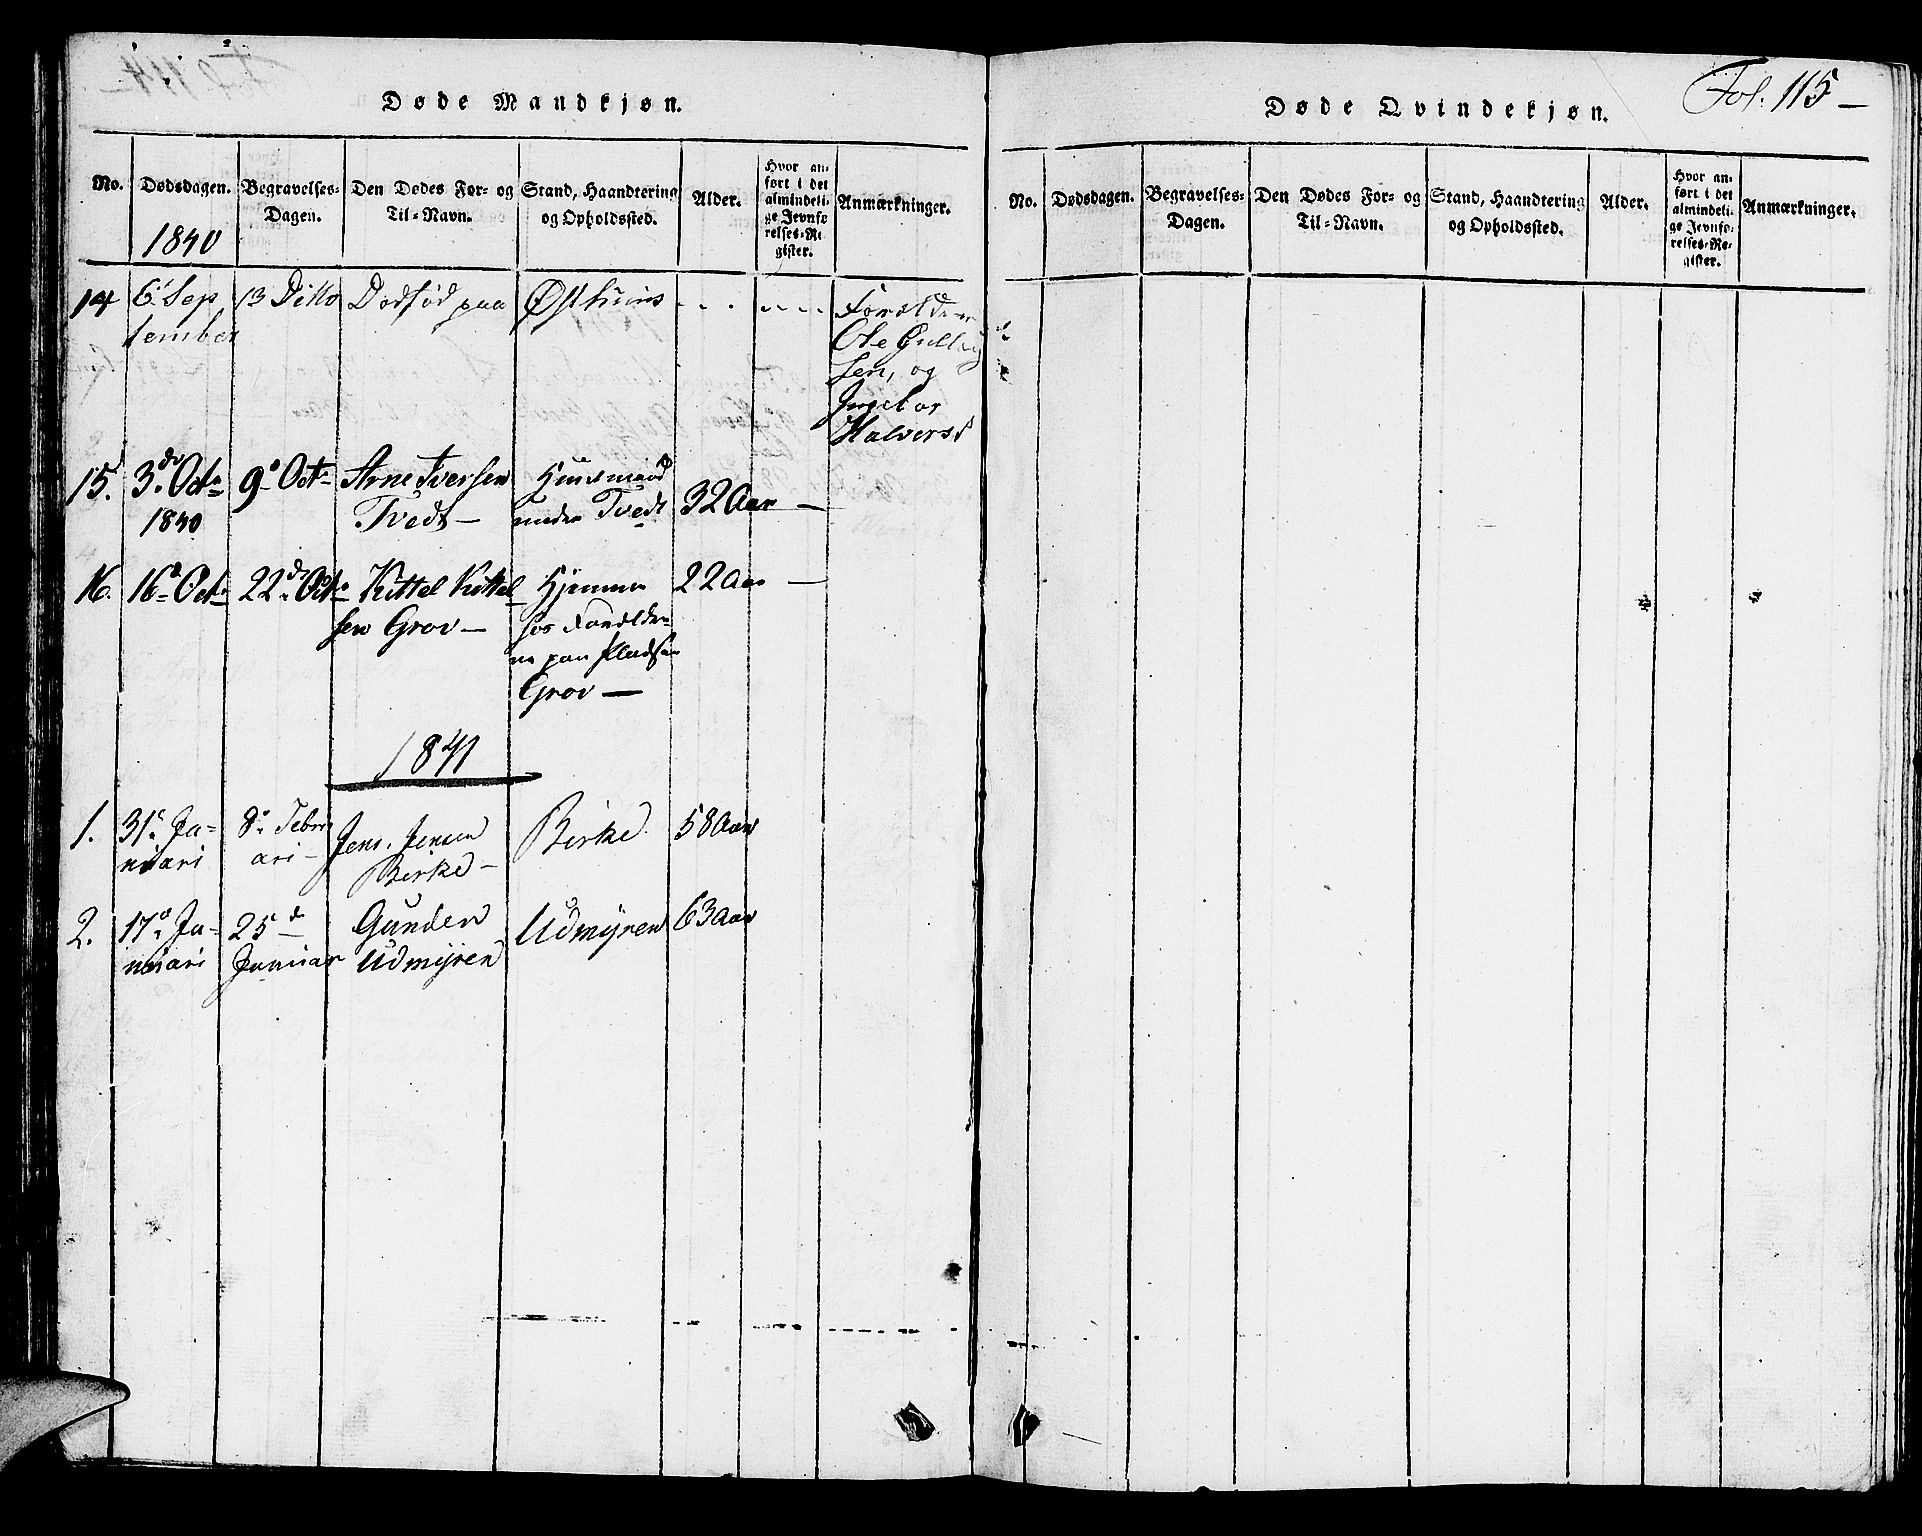 Døde Mandkjøn.
No.
Dødsdagen.
1840
Begravelses-
Dagen.
Den Dødes For- og
Til-Navn.
Stand, Haandtering
og Opholdssted.
Alder.
Hvor an-
ført i det
almindeli-
ge Jevnfø
relses-Re
gister.
Anmærkninger.
14
6' Sep
tember
13 Ditto
Dødfød paa
Østhuus
Foræld
Ole
sen, og
Ingebor
Halversd
15.
3de Oct.
1840
9d Oct.
Arne Iversen
Tvedt —
Huusmand
under Tvedt
32 Aar —
16.
16d Oct.
22de Oct.
Kittel Kittel
sen Grov —
Hjemme
hos Forældre
ne paa Pladsen
Grov —
22 Aar —
1841
1.
31t Ja-
nuari
8d Febru
ari —
Jens Jensen
Birke —
Birke
58 Aar
2.
17d Ja-
nuari
25 de
Januar
Gunder
Udmyren
Udmyren
63 Aar
Fol. 115 —
Døde Qvindekjøn.
No.
Dødsdagen.
Begravelses-
Dagen.
Den Dødes For- og
Til-Navn.
Stand, Haandtering
og Opholdssted.
Alder.
Hvor an-
ført i det
almindeli-
ge Jevnfø-
relses-Re-
gister.
Anmærkninger.